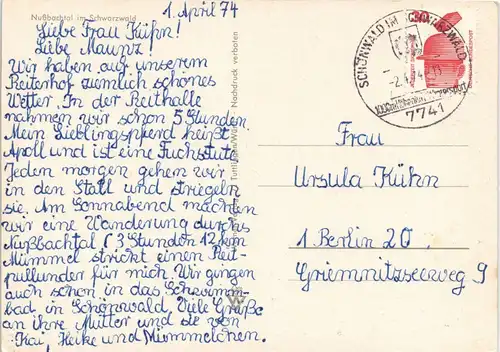 Nußbachtal im Schwarzwald
1. April 74
Liebe Frau Kühn!
Liebe Maunz!
Wir haben auf unserem
Reiterhof ziemlich schönes
Wetter. In der Reithalle
nahmen wir schon 5 Stunden.
Mein Lieblingspferd heißt
Apoll und ist eine Fuchsstute.
Jeden morgen gehen wir
in den Stall und striegeln
sie. Am Sonnabend machten
wir eine Wanderung durchs
Nußbachtal (3 Stunden 12 km
Mümmel strickt einen Reit-
pullunder für mich. Wir gingen
auch schon in das Schwimm-
bad in Schönwald. Viele Grüße
an ihre Mutter und sie von
Kai, Heike und Mümmelchen.
Nachdruck verboten
SCHÖNWALD IM SCHWARZWALD
7741
Frau
Ursula Kühn
1 Berlin 20
Griemnitzseeweg 9